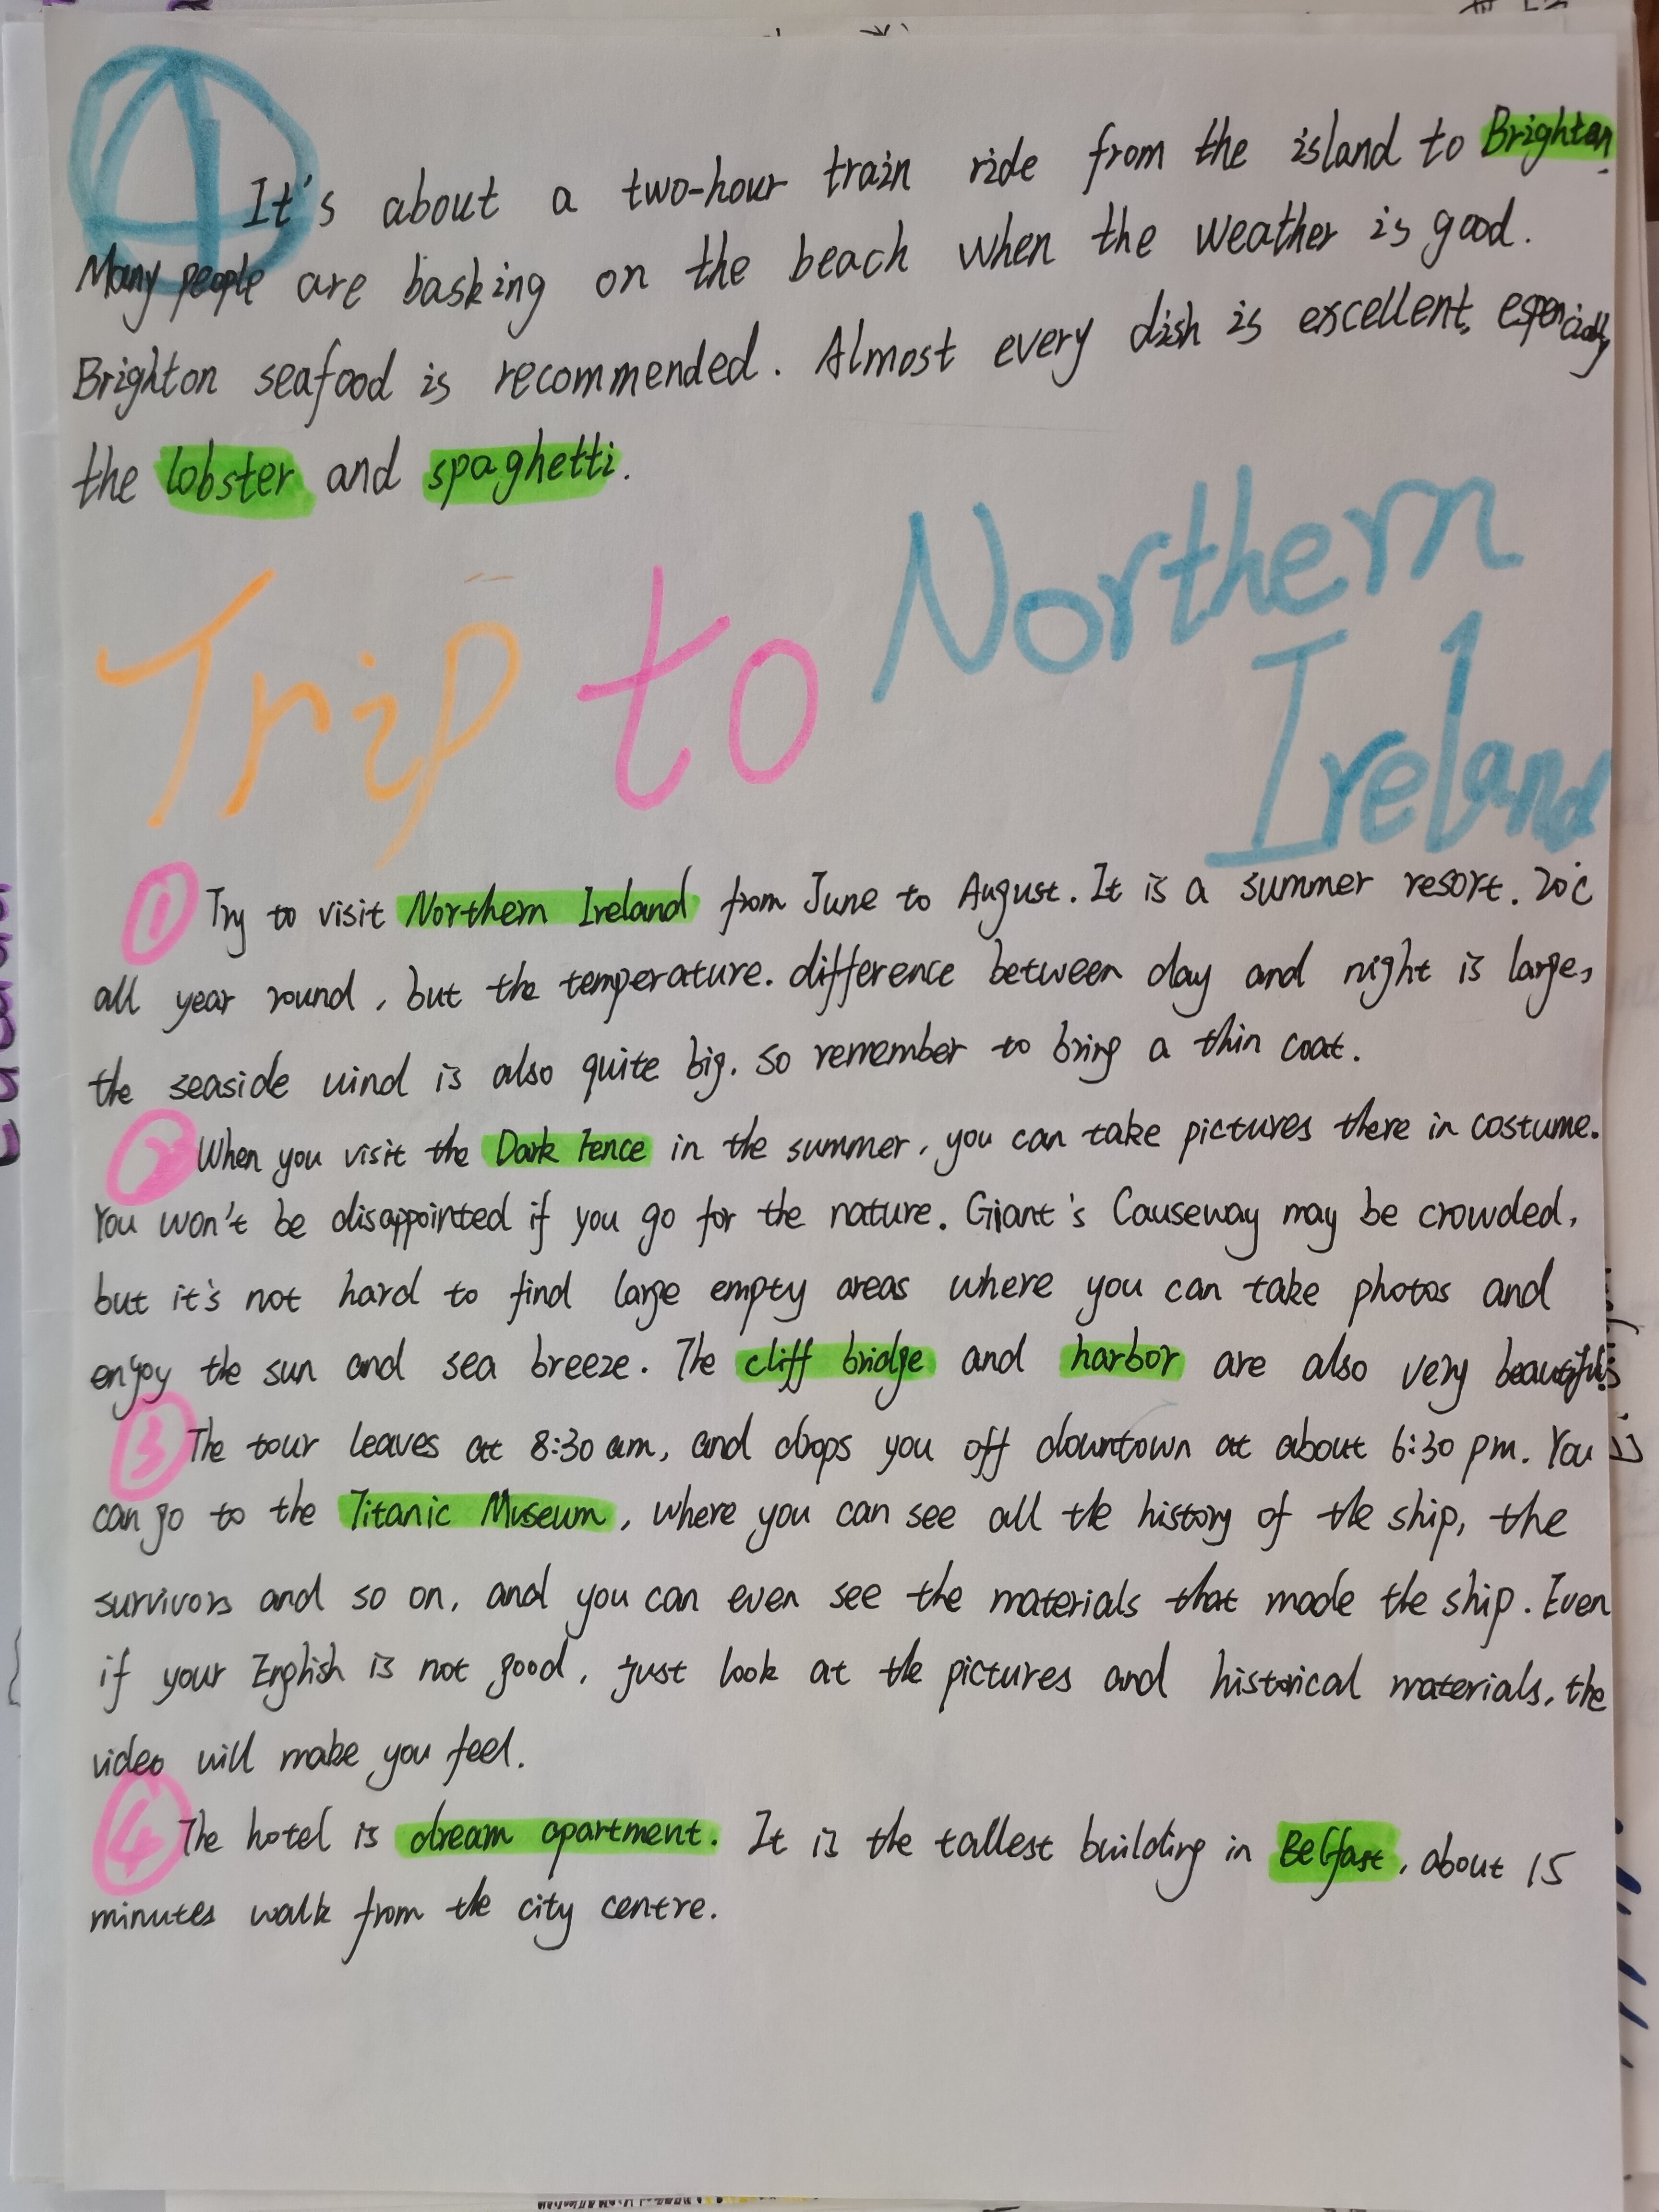 4
It's about a two-hour train ride from the island to Brighton.
Many people are basking on the beach when the weather is good.
Brighton seafood is recommended. Almost every dish is excellent, especially
the lobster and spaghetti.
Trip to Northern
Ireland
① Try to visit Northern Ireland from June to August. It is a summer resort. 20°C
all year round, but the temperature. difference between day and night is large,
the seaside wind is also quite big. so remember to bring a thin coat.
② When you visit the Dark Fence in the summer, you can take pictures there in costume.
You won't be disappointed if you go for the nature. Giant's Causeway may be crowded,
but it's not hard to find large empty areas where you can take photos and
enjoy the sun and sea breeze. The cliff bridge and harbor are also very beautiful.
③ The tour leaves at 8:30 am, and drops you off downtown at about 6:30 pm. You
can go to the Titanic Museum, where you can see all the history of the ship, the
survivors and so on, and you can even see the materials that made the ship. Even
if your English is not good, just look at the pictures and historical materials, the
video will make you feel.
④ The hotel is dream apartment. It is the tallest building in Belfast, about 15
minutes walk from the city centre.